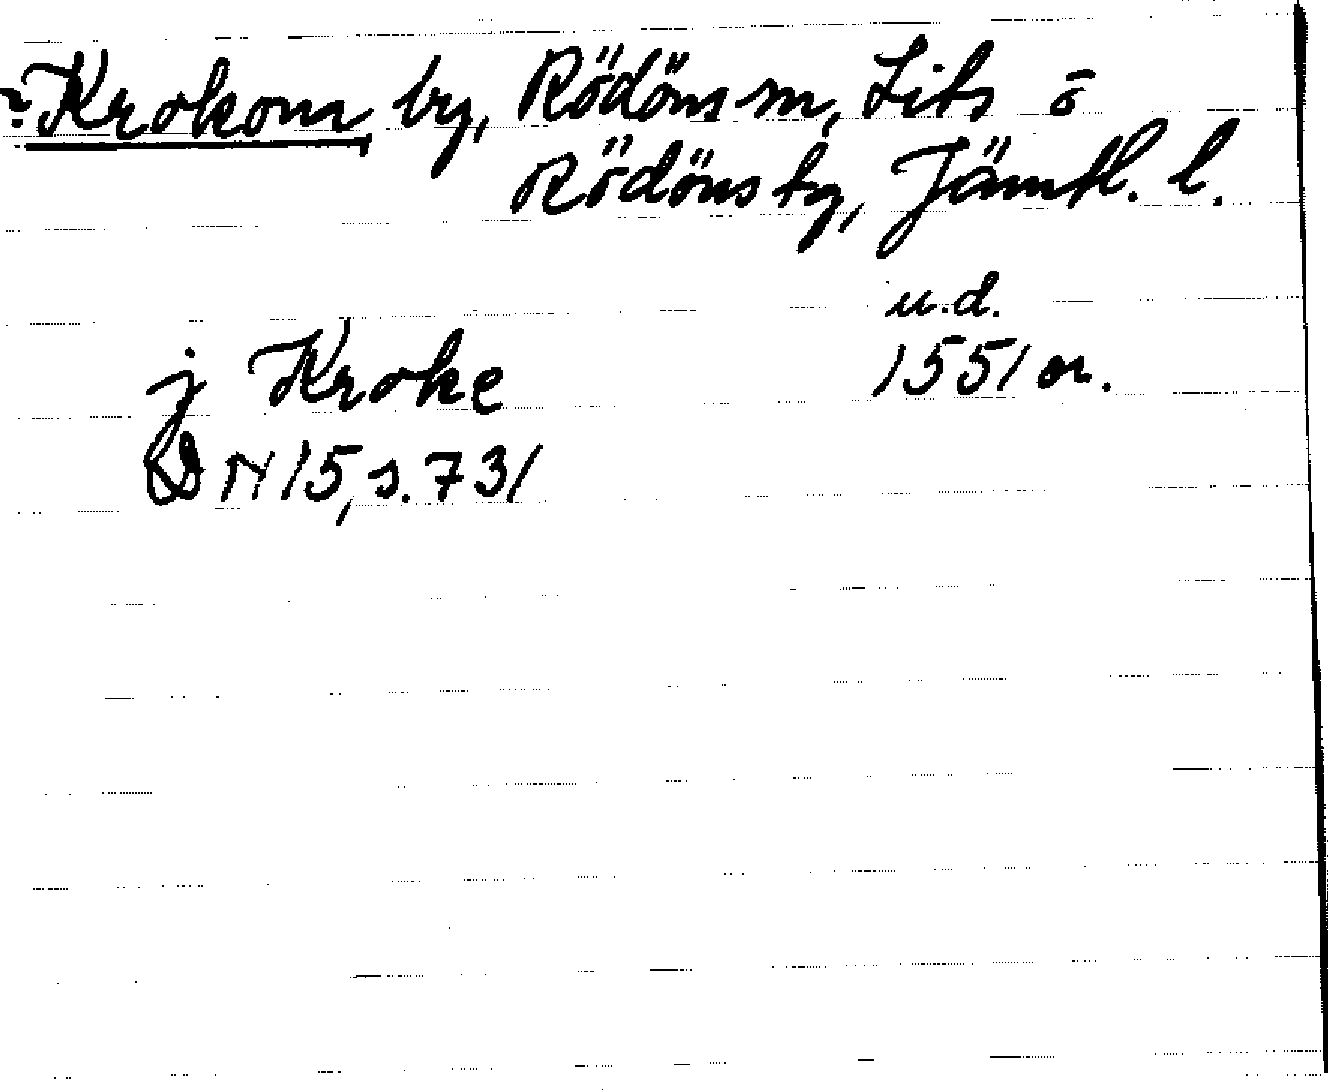 ?Krokom, by, Rödöns sn, Lits o
Rödöns tg, Jämtl. l.
u.d.
j Kroke 1551 or.
DN 15, s. 731